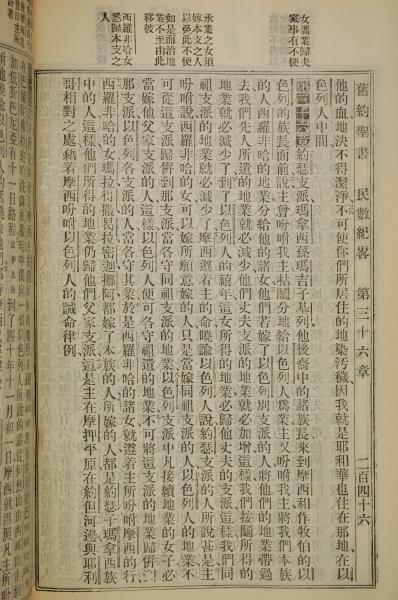 舊約聖書 民數紀畧 第三十六章 二百四十六
他的血地決不得潔淨不可使你們所居住的地染污穢因我就是耶和華也住在那地在以
色列人中間
第三十六章約瑟支派瑪拿西孫瑪吉子基列他後裔中的諸族長來到摩西和作牧伯的以
色列的族長面前說主曾吩咐我主拈鬮分地給以色列人爲業主又吩咐我主將我們本族
的人西羅非哈的地業分給他的諸女他們若嫁了以色列別支派的人將他們的地業帶過
去我們先人所遺的地業就必減少他們丈夫支派的地業就必加增這樣我們拈鬮所得的
地業就必減少了到了以色列人的禧年這女所得的地業必歸他丈夫的支派這樣我們同
祖支派的地業就必減少了摩西遵着主的命曉諭以色列人說約瑟支派的人所說甚是主
吩咐說西羅非哈的女可以嫁所願意嫁的人只是當嫁同祖支派的人以色列人的地業不
可從這支派歸併到那支派當各守同祖支派的地業以色列支派中凡接續地業的女子必
當嫁他父家支派的人這樣以色列人便可各守祖遺的地業不可將這支派的地業歸併
那支派以色列各支派的人當各守其業於是西羅非哈的諸女就遵着主所吩咐摩西的行
西羅非哈的女瑪拉得撒曷拉密迦挪阿都嫁了本族的人所嫁的人都是約瑟子瑪拿西族
中的人這樣他們所得的地業仍歸他們父家支派這是主在摩押平原在約但河邊與耶利
哥相對之處藉着摩西吩咐以色列人的誡命律例
女濡業歸夫
家事有不便
承業之女須
嫁本支之人
以免此不便
如是而治地
業不至由此
移彼
西羅非哈女
悉歸本支之